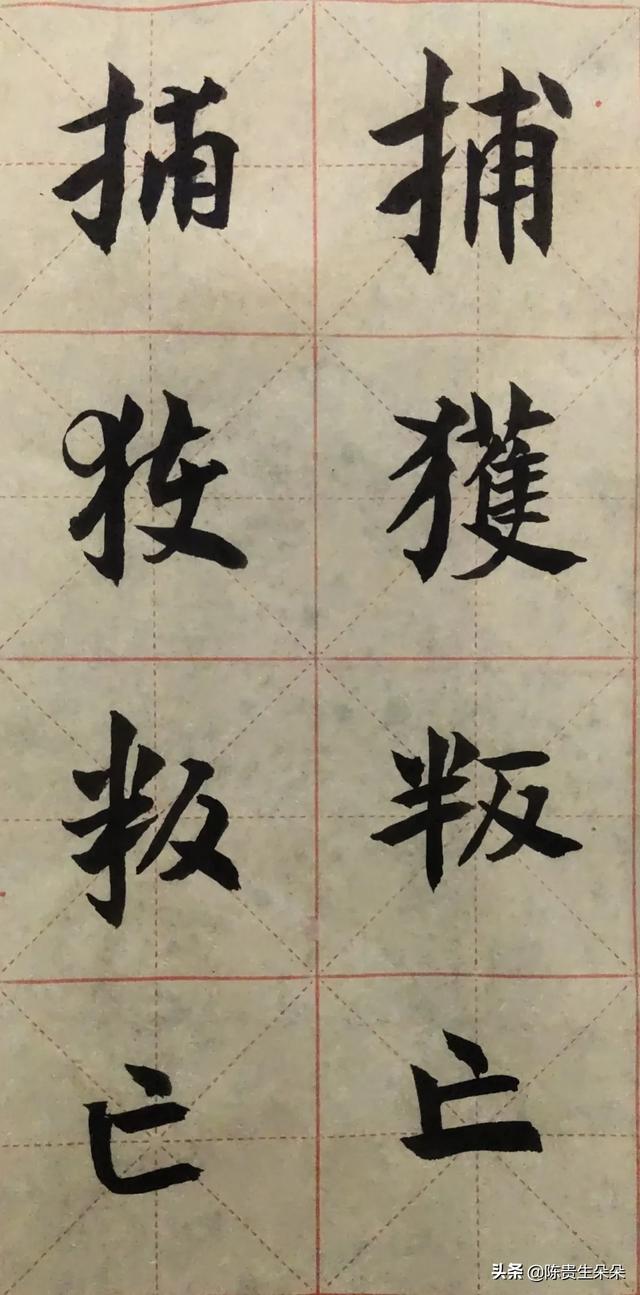 捕獲叛亡
捕獲叛亡
头条 @陈贵生朵朵